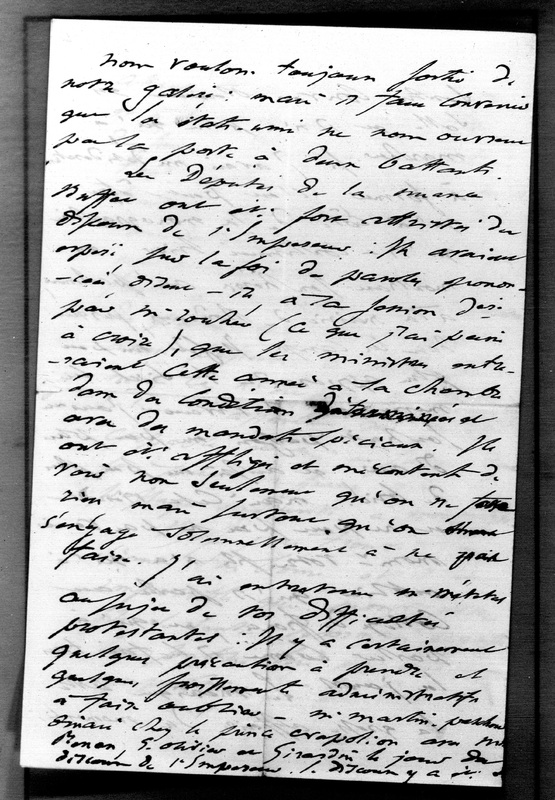 nous voulons toujours sortir de
notre galère : mais il faut convenir
que les états-unis ne nous ouvrent
pas la porte à deux battants.
Les Députés de la nuance
Buffet ont été fort attristés du
discours de l'Empereur : Ils avaient
espéré sur la foi de paroles pronon-
-cées, disent-ils, à la session der-
par m. rouher (ce que j'ai peine
à croire), que les ministres entre-
-raient cette année à la chambre
dans des conditions déterminées et
avec des mandats spéciaux. Ils
ont été affligés et mécontents de
voir non seulement qu'on ne fasse
rien mais surtout qu'on
s'engage solennellement à ne rien
faire. J'ai entretenu
au sujet de vos difficultés
protestantes : Il y a certainement
quelques précautions à prendre et
quelques froissements administratifs
à faire oublier - m. martin
dîné chez le prince napoléon avec
Renan, E. olivier et Girardin le jour du
discours de l'Empereur. Le discours y a été